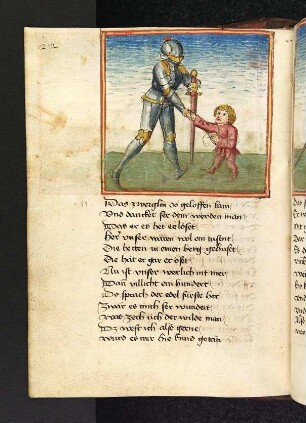 Das zwerglin do geloffen kam
Vnd dancket ser dem werden man
Das er es het erlöset
Her vnser waren wol ein tusent
Die hetten in einen berg gehuset
Die hat er gar er öset
Nu ist vnser werlich nit mer
Dan villicht ein hundert
Do sprach der edel fürste her
Zwar es mich ser wundert
was zech üch der wilde man
Daz west ich also gerne
würd es mir hie kund getan